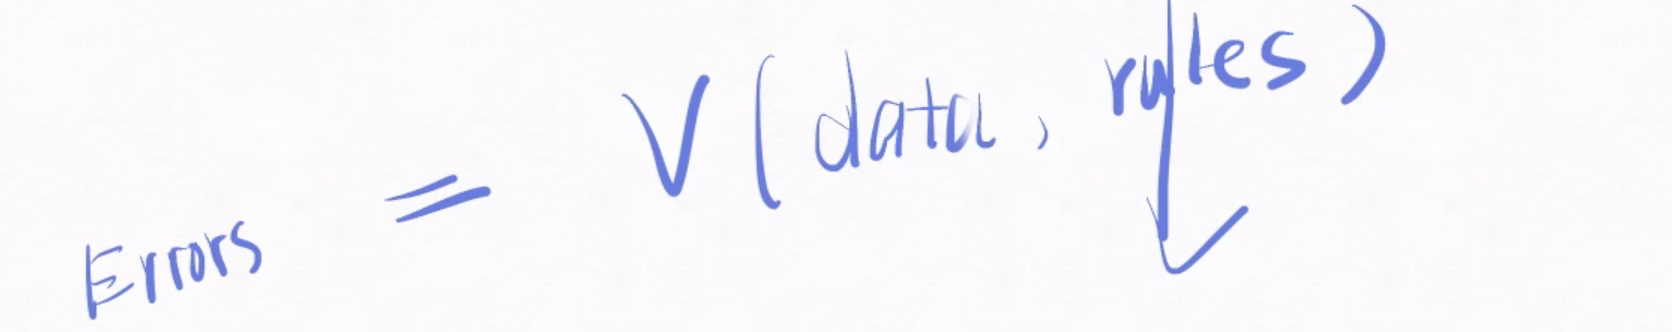 Errors = V(data, rules)